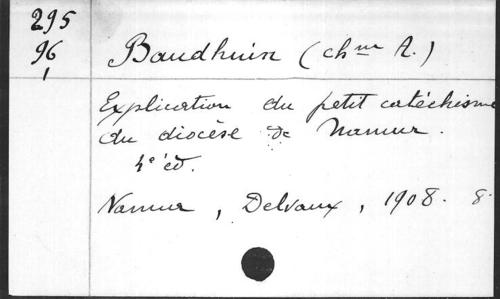 295
96
1
Baudhuin (chne A.)
Explication du petit catéchisme
du diocèse de Namur.
4e éd.
Namur, Delvaux, 1908. 8.